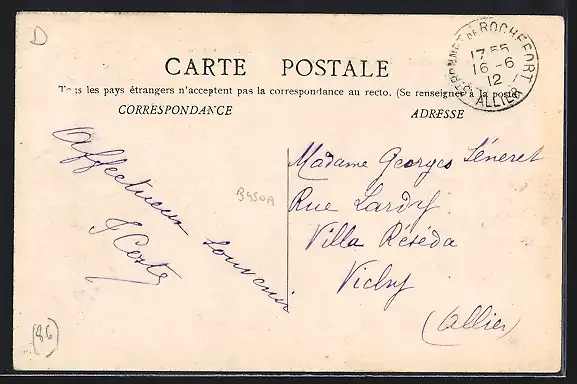 D
ST BONNET DE ROCHEFORT
17 55
16 - 6
12
ALLIER
CARTE POSTALE
Tous les pays étrangers n'acceptent pas la correspondance au recto. (Se renseigner à la poste)
CORRESPONDANCE
ADRESSE
Affectueux souvenir
J Coste
Madame Georges Séneret
Rue Lardy
Villa Réséda
Vichy
(Allier)
(86)